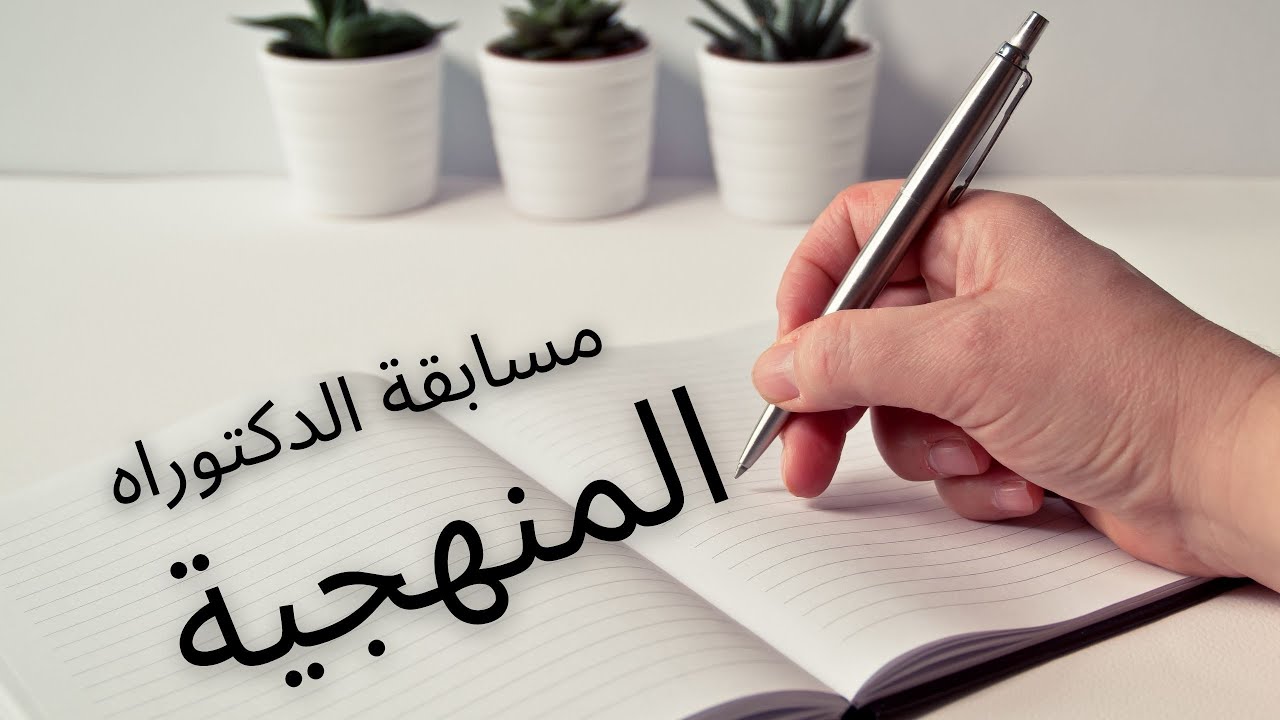 مسابقة الدكتوراه
المنهجية